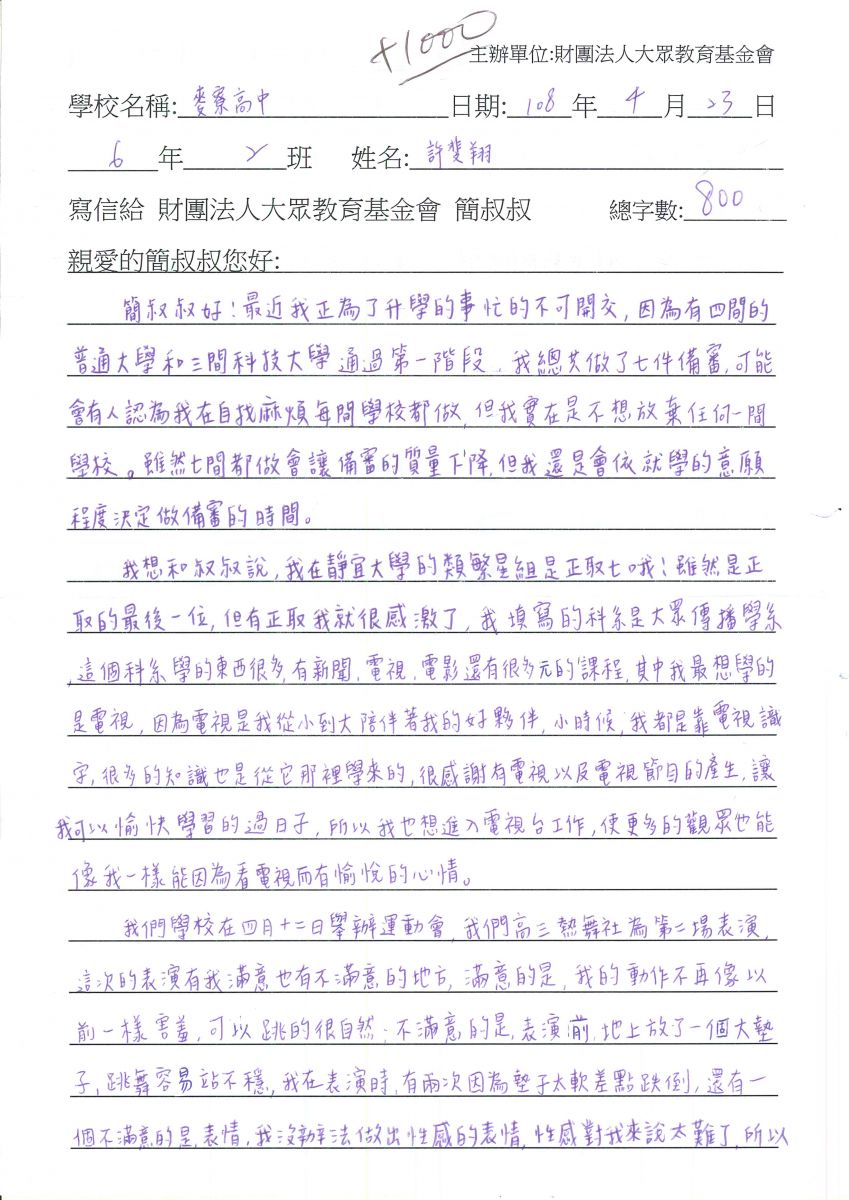 +1000
主辦單位:財團法人大眾教育基金會
學校名稱:麥寮高中 日期:108年4月23日
6年2班 姓名:許斐翔
寫信給 財團法人大眾教育基金會 簡叔叔 總字數:800
親愛的簡叔叔您好:
簡叔叔好!最近我正為了升學的事忙的不可開交,因為有四間的
普通大學和三間科技大學通過第一階段,我總共做了七件備審,可能
會有人認為我在自找麻煩每間學校都做,但我實在是不想放棄任何一間
學校。雖然七間都做會讓備審的質量下降,但我還是會依就學的意願
程度決定做備審的時間。
我想和叔叔說,我在靜宜大學的類繁星組是正取七哦!雖然是正
取的最後一位,但有正取我就很感激了,我填寫的科系是大眾傳播學系
,這個科系學的東西很多,有新聞、電視、電影還有很多元的課程,其中我最想學的
是電視,因為電視是我從小到大陪伴著我的好夥伴,小時候,我都是靠電視識
字,很多的知識也是從它那裡學來的,很感謝有電視以及電視節目的產生,讓
我可以愉快學習的過日子,所以我也想進入電視台工作,使更多的觀眾也能
像我一樣能因為看電視而有愉悅的心情。
我們學校在四月十二日舉辦運動會,我們高三熱舞社為第二場表演,
這次的表演有我滿意也有不滿意的地方,滿意的是,我的動作不再像以
前一樣害羞,可以跳的很自然;不滿意的是,表演前,地上放了一個大墊
子,跳舞容易站不穩,我在表演時,有兩次因為墊子太軟差點跌倒,還有一
個不滿意的是,表情,我沒辦法做出性感的表情,性感對我來說太難了,所以